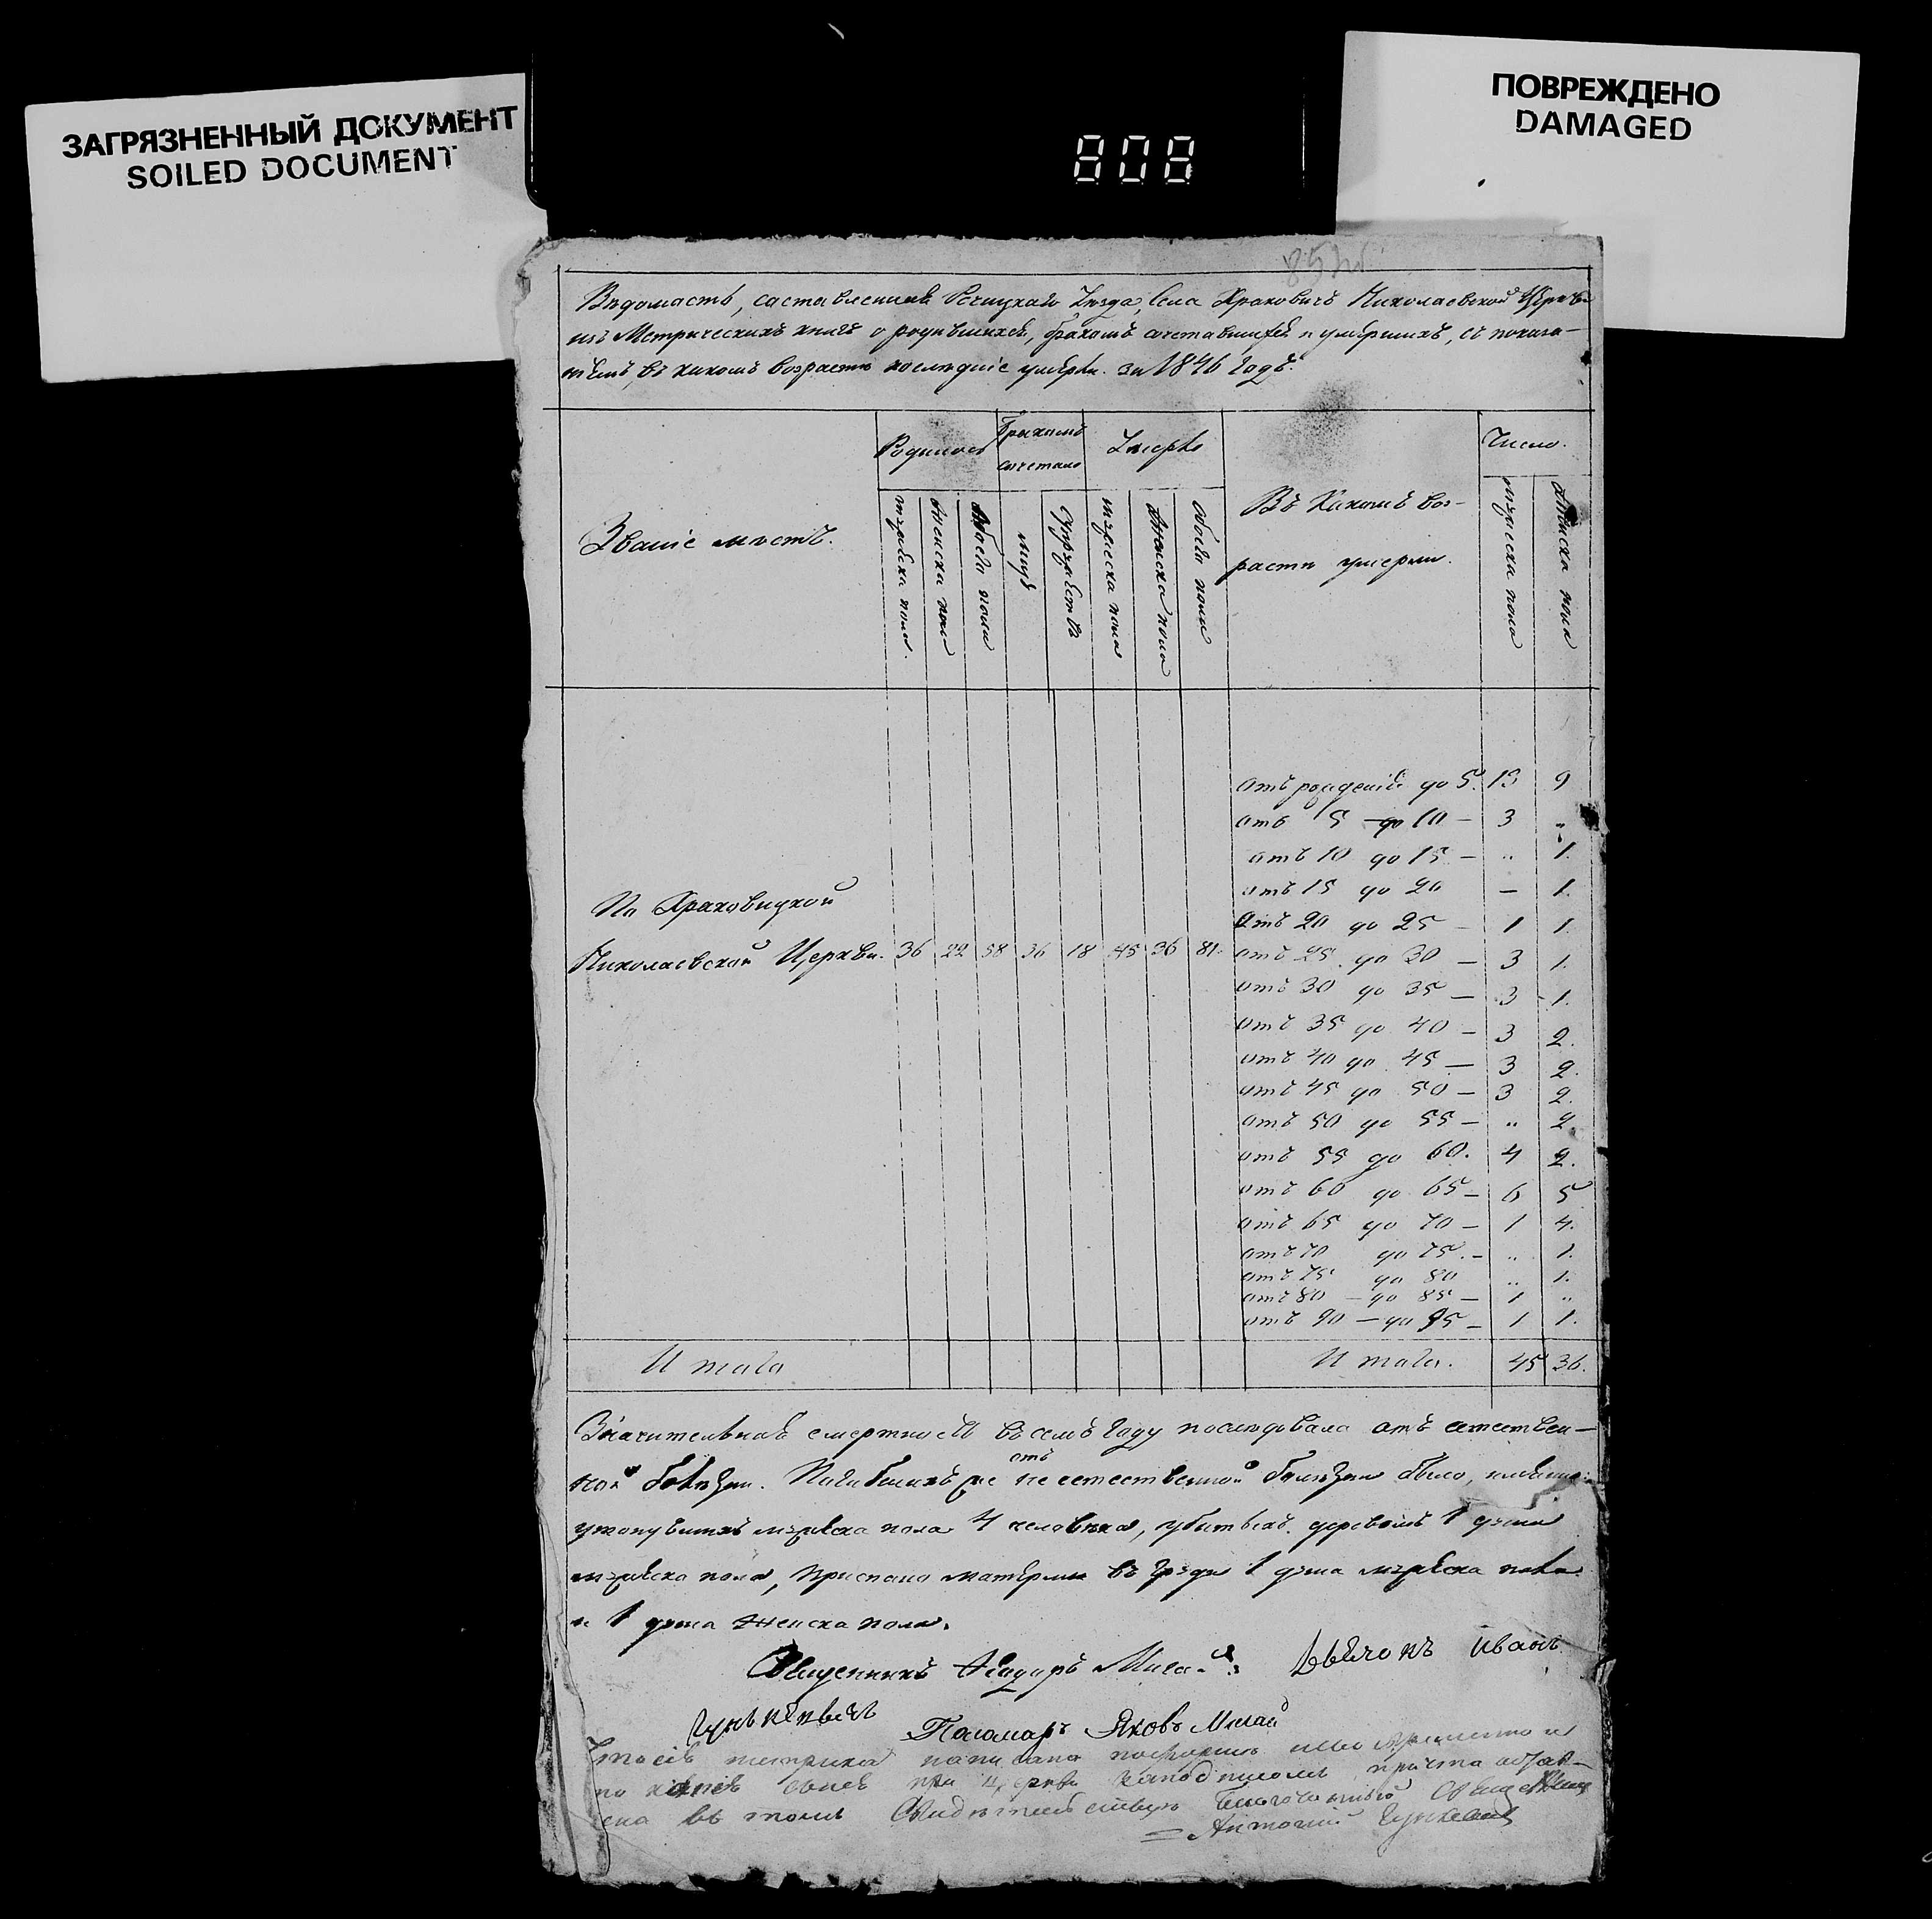 ЗАГРЯЗНЕННЫЙ ДОКУМЕНТ
SOILED DOCUMENT
ПОВРЕЖДЕНО
DAMAGED
808
Вѣдомость, составленная Речицкаго Уѣзда, Села Храковичъ Николаевской Церкви
изъ Метрическихъ книгъ о родившихся, бракомъ сочетавшихся и умершихъ, съ показа-
ніемъ, въ какомъ возрастѣ послѣдніе умерли. за 1846 Годъ.
Званіе мѣстъ.
Родилось
Бракомъ сочетано
Умерло
Въ какомъ воз-
растѣ умерли.
Число.
мужеска пола.
женска пола
обоего пола
лицъ
супружествъ
мужеска пола
женска пола
обоего пола
мужеска пола
женска пола
отъ рожденія до 5. 15 9
отъ 5 — до 10 — 3 „
отъ 10 до 15 — „ 1.
отъ 15 до 20 — 1.
отъ 20 до 25 — 1 1.
отъ 25 до 30 — 3 1.
отъ 30 до 35 — 3 1.
отъ 35 до 40 — 3 2.
отъ 40 до 45 — 3 2.
отъ 45 до 50 — 3 2.
отъ 50 до 55 — „ 2.
отъ 55 до 60. 4 2.
отъ 60 до 65 — 6 5
отъ 65 до 70 — 1 4.
отъ 70 до 75. — „ 1.
отъ 75 до 80 „ 1.
отъ 80 — до 85 — 1 „
отъ 90 — до 95 — 1 1.
По Храковицкой
Николаевской Церкви. 36 22 58 36 18 45 36 81.
Итого
Итого. 45 36.
Значительная смертность въ семъ году послѣдовала отъ естествен-
ной болѣзни. Погибшихъ же отъ не естественной болѣзни было, именно:
утонувшихъ мужеска пола 4 человѣка, убитыхъ деревомъ 1 душа
мужеска пола, приспано матерями въ груди 1 душа мужеска пола
и 1 душа женска пола.
Священникъ Дьячокъ Иванъ
Пономарь Яковъ Мигай
метрика написана
въ томъ свидѣтельствую Благочинный Священникъ
Антоній